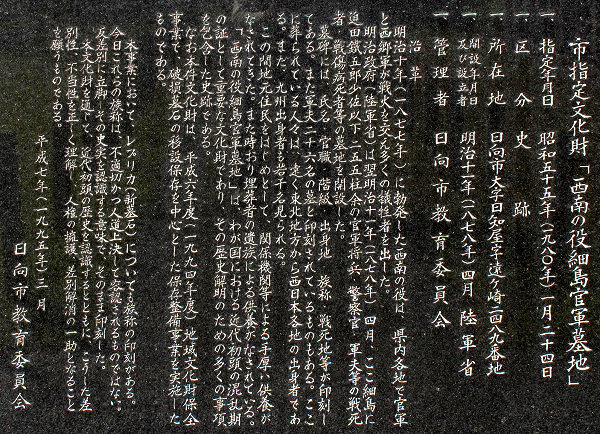 市指定文化財「西南の役細島官軍墓地」
一、指定年月日　昭和五十五年(一九八〇年)一月二十四日
一、区分　史跡
一、所在地　日向市大字日知屋字遠ヶ崎二四八九番地
一、開設年月日及び設立者　明治十一年(一八七八年)四月　陸軍省
一、管理者　日向市教育委員会
沿革
明治十年(一八七七年)に勃発した西南の役は、県内各地で官軍
と西郷軍が戦火を交え多くの犠牲者を出した。
明治政府(陸軍省)は翌明治十一年(一八七八年)四月、ここ細島に
迫田鐵五郎少佐以下二五五柱余の官軍将兵、警察官、軍夫等の戦死
者・戦傷病死者等の墓地を開設した。
墓碑には、氏名、官職、階級、出身地、族称、戦死地等が印刻し
てある。また軍夫二十六名の墓と印刻されているものもある。ここ
に葬られている人々は、遠く東北地方から西日本各地の出身者であ
る。また、九州出身者も若干名見られる。
この間地元住民をはじめとして、関係機関等による手厚い供養が
なされてきた。また時おり埋葬者の遺族による供養がなされている。
「西南の役細島官軍墓地」は、わが国における近代初頭の混乱期
の証として重要な文化財であり、その歴史解明のための多くの事項
を包含した史跡である。
なお本件文化財は、平成六年度(一九九四年度)地域文化財保全
事業で、破損墓石の移設保存を中心とした保存整備事業を実施した
ものである。
本事業において、レプリカ(新墓石)についても族称の印刻がある。
今日これらの族称は、不適切かつ人道上決して容認されるものではない。
反差別に立脚しその史実を認識する意味で、そのまま印刻した。
本文化財を通して、近代初頭の歴史を認識するとともに、こうした差
別性、不当性を正しく理解し、人権の擁護、差別解消の一助となること
を願うものである。
平成七年(一九九五年)三月
日向市教育委員会